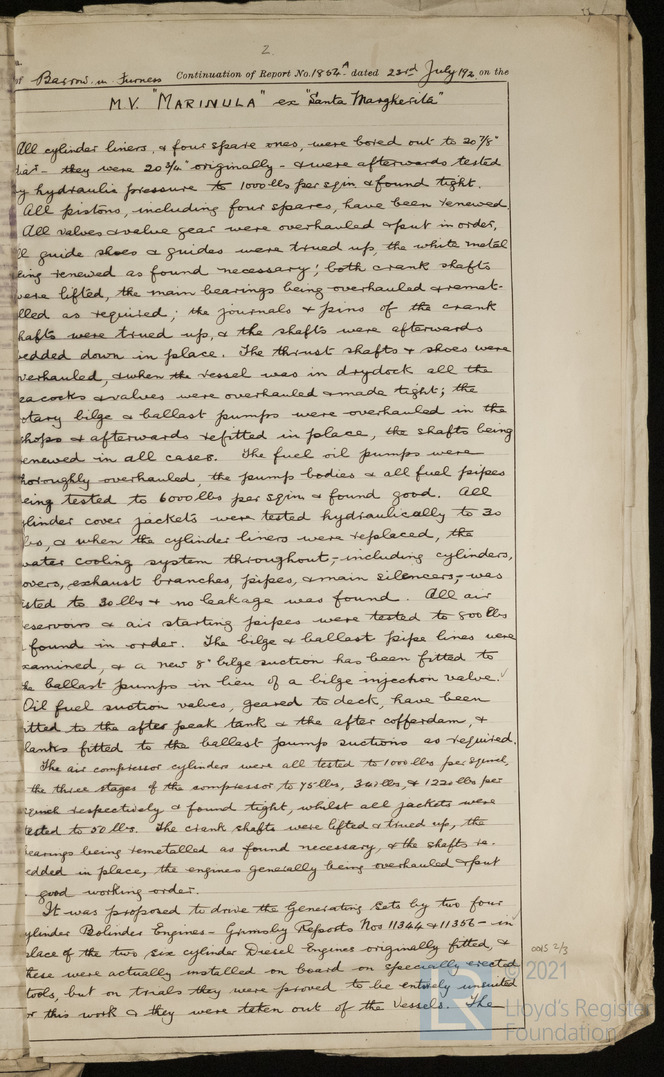 2.
of Barrow in Furness Continuation of Report No. 1854A dated 23rd July 192 on the
M.V. "MARINULA" ex "Santa Margherita"
All cylinder liners, & four spare ones, were bored out to 20 7/8"
dia - they were 20 3/4" originally - & were afterwards tested
by hydraulic pressure to 1000 lbs per sqin & found tight.
All pistons, including four spares, have been renewed.
All valves & valve gear were overhauled & put in order,
ll guide shoes & guides were trued up, the white metal
eing renewed as found necessary; both crank shafts
were lifted, the main bearings being overhauled & remet-
lled as required; the journals & pins of the crank
hafts were trued up, & the shafts were afterwards
edded down in place. The thrust shafts & shoes were
verhauled, & when the vessel was in drydock all the
ea cocks & valves were overhauled & made tight; the
otary bilge & ballast pumps were overhauled in the
hops & afterwards refitted in place, the shafts being
enewed in all cases. The fuel oil pumps were
horoughly overhauled, the pump bodies & all fuel pipes
eing tested to 6000 lbs per sqin & found good. All
ylinder cover jackets were tested hydraulically to 30
lbs, & when the cylinder liners were replaced, the
water cooling system throughout, - including cylinders,
overs, exhaust branches, pipes, & main silencers, - was
ested to 30 lbs & no leakage was found. All air
eservoirs & air starting pipes were tested to 800 lbs
found in order. The bilge & ballast pipe lines were
xamined, & a new 8" bilge suction has been fitted to
he ballast pumps in lieu of a bilge injection valve.
Oil fuel suction valves, geared to deck, have been
itted to the after peak tank & the after cofferdam, &
lanks fitted to the ballast pump suctions as required.
The air compressor cylinders were all tested to 1000 lbs per sqinch,
the three stages of the compressor to 75 lbs, lbs, & 1220 lbs per
sqinch respectively & found tight, whilst all jackets were
ested to 50 lbs. The crank shafts were lifted & trued up, the
earings being remetalled as found necessary, & the shafts re-
edded in place, the engines generally being overhauled & put
good working order.
It was proposed to drive the Generating Sets by two four
ylinder Bolinder Engines - Grimsby Reports Nos 11344 & 11356 - in
place of the two six cylinder Diesel Engines originally fitted, &
hese were actually installed on board on specially erected
tools, but on trials they were proved to be entirely unsuited
or this work & they were taken out of the vessels. The
0045 2/3
© 2021
Lloyd's Register
Foundation
LR